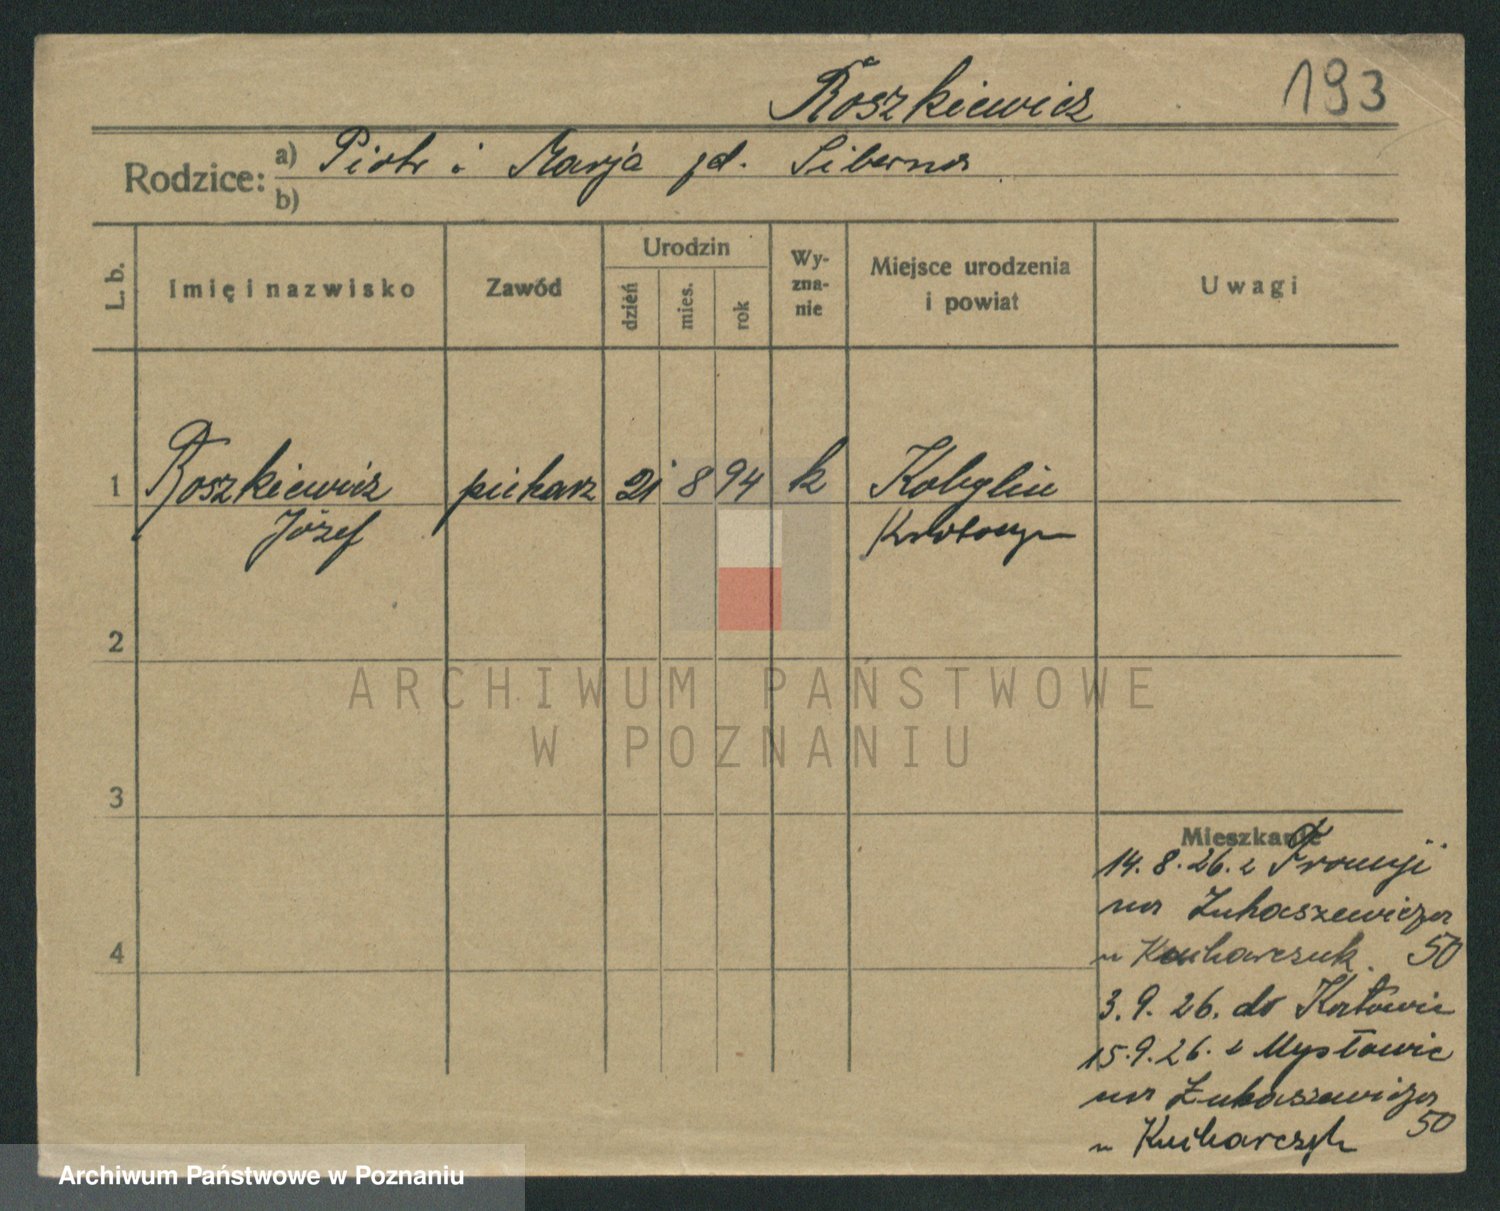 Roszkiewicz 193
Rodzice: a) Piotr i Marja zd. Siberna
b)
L. b. Imię i nazwisko Zawód Urodzin Wy-zna-nie Miejsce urodzenia i powiat Uwagi
dzień mies. rok
1 Roszkiewicz piekarz 21 8 94 k Kobylin
Józef Krotoszyn
2
ARCHIWUM PAŃSTWOWE
W POZNANIU
3
Mieszkanie
14. 8. 26. z Francji
na Łukaszewicza
u Kucharczyk 50
4
3. 9. 26. do Katowic
15. 9. 26. z Mysłowic
na Łukaszewicza
u Kucharczyk 50
Archiwum Państwowe w Poznaniu